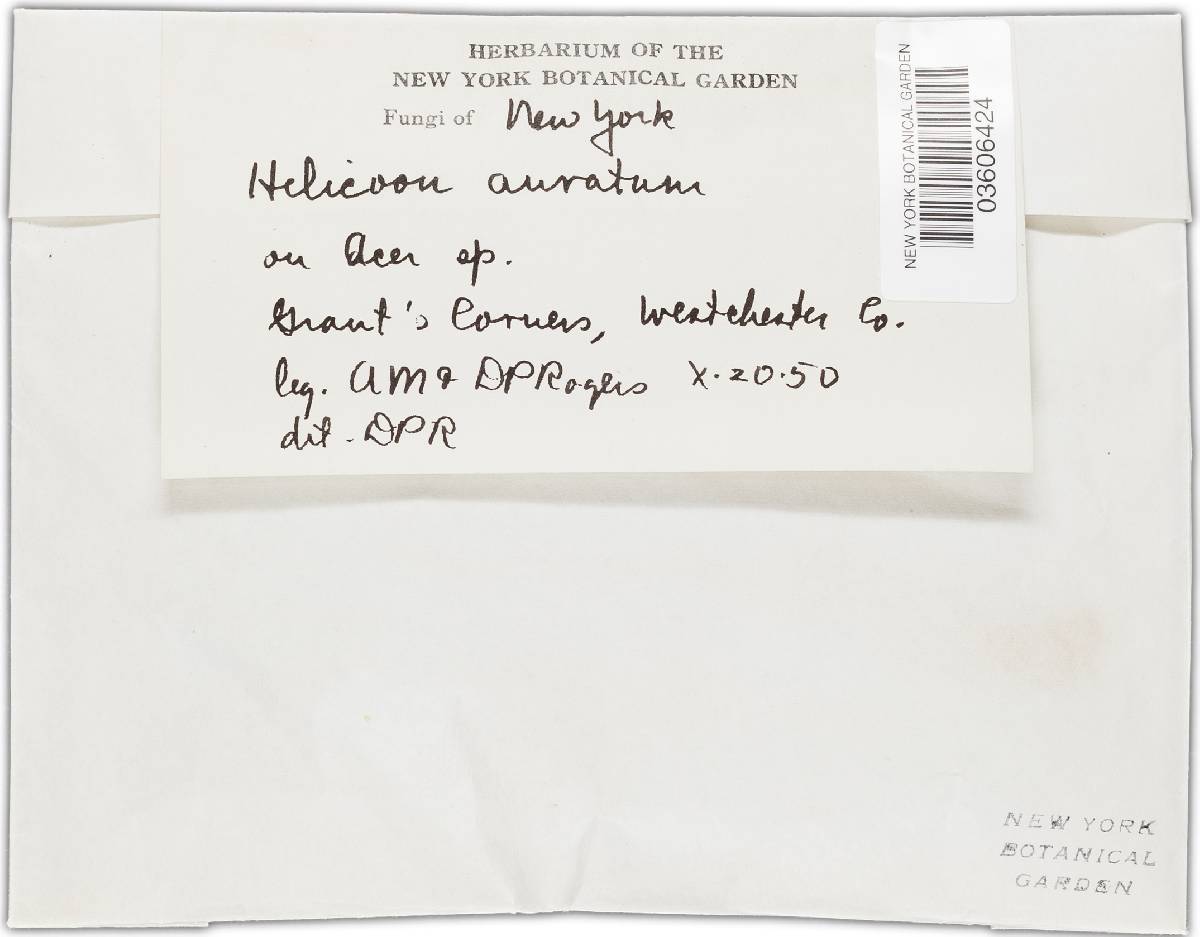 HERBARIUM OF THE
NEW YORK BOTANICAL GARDEN
Fungi of New York
Helicoon auratum
on Acer sp.
Grant's Corners, Westchester Co.
leg. AM & DPRogers X.20.50
det. DPR
NEW YORK BOTANICAL GARDEN
03606424
NEW YORK
BOTANICAL
GARDEN